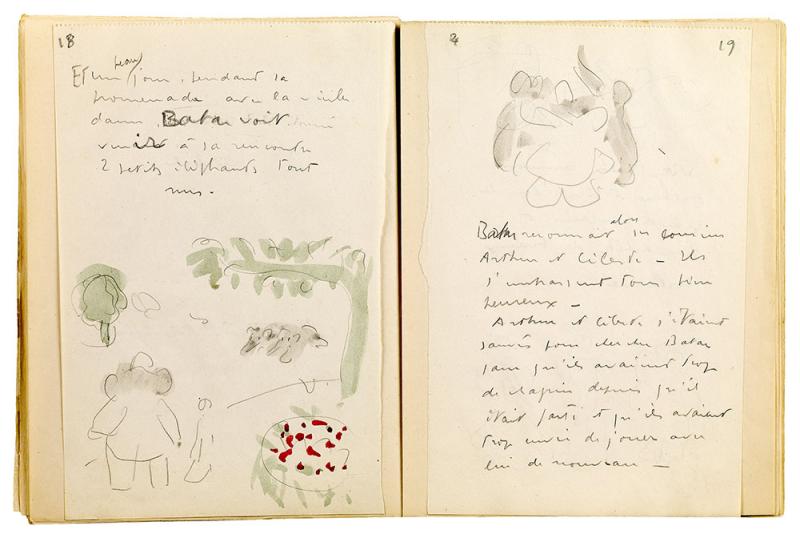 18
Et un beau jour, pendant sa
promenade avec la vieille
dame Babar voit
venir à sa rencontre
2 petits éléphants tout
nus.
2 19
Babar reconnait alors ses cousins
Arthur et Céleste — Ils
s'embrassent tous bien
heureux —
Arthur et Céleste s'étaient
sauvés pour chercher Babar
parce qu'ils avaient trop
de chagrin depuis qu'il
était parti et qu'ils avaient
trop envie de jouer avec
lui de nouveau —